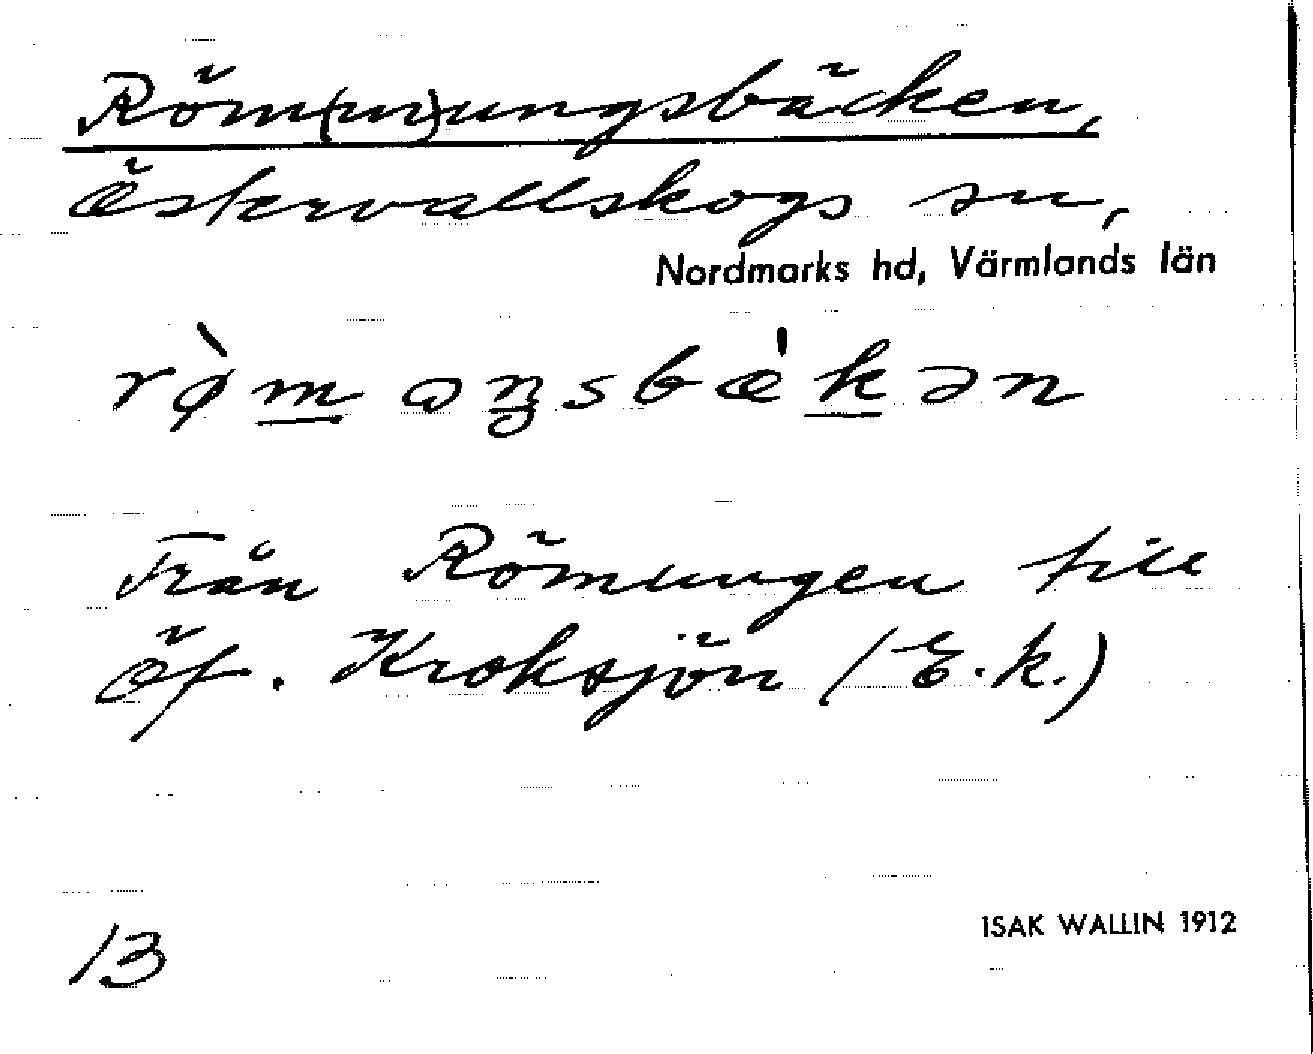 Röm(m)ungsbäcken,
Östervallskogs sn,
Nordmarks hd, Värmlands län
rø̀m̲əŋsbæ̀k̲ən
Från Römungen till
Öf. Kroksjön (E.k.)
13
ISAK WALLIN 1912